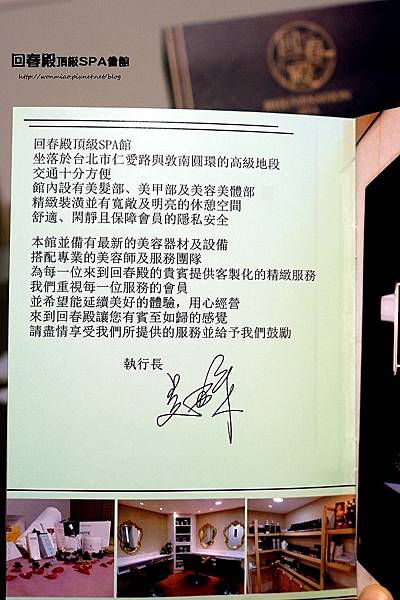 回春殿頂級SPA會館
http://wonmiao.pixnet.net/blog
回春殿
回春殿頂級SPA館
坐落於台北市仁愛路與敦南圓環的高級地段
交通十分方便
館內設有美髮部、美甲部及美容美體部
精緻裝潢並有寬敞及明亮的休憩空間
舒適、閑靜且保障會員的隱私安全
本館並備有最新的美容器材及設備
搭配專業的美容師及服務團隊
為每一位來到回春殿的貴賓提供客製化的精緻服務
我們重視每一位服務的會員
並希望能延續美好的體驗，用心經營
來到回春殿讓您有賓至如歸的感覺
請盡情享受我們所提供的服務並給予我們鼓勵
執行長